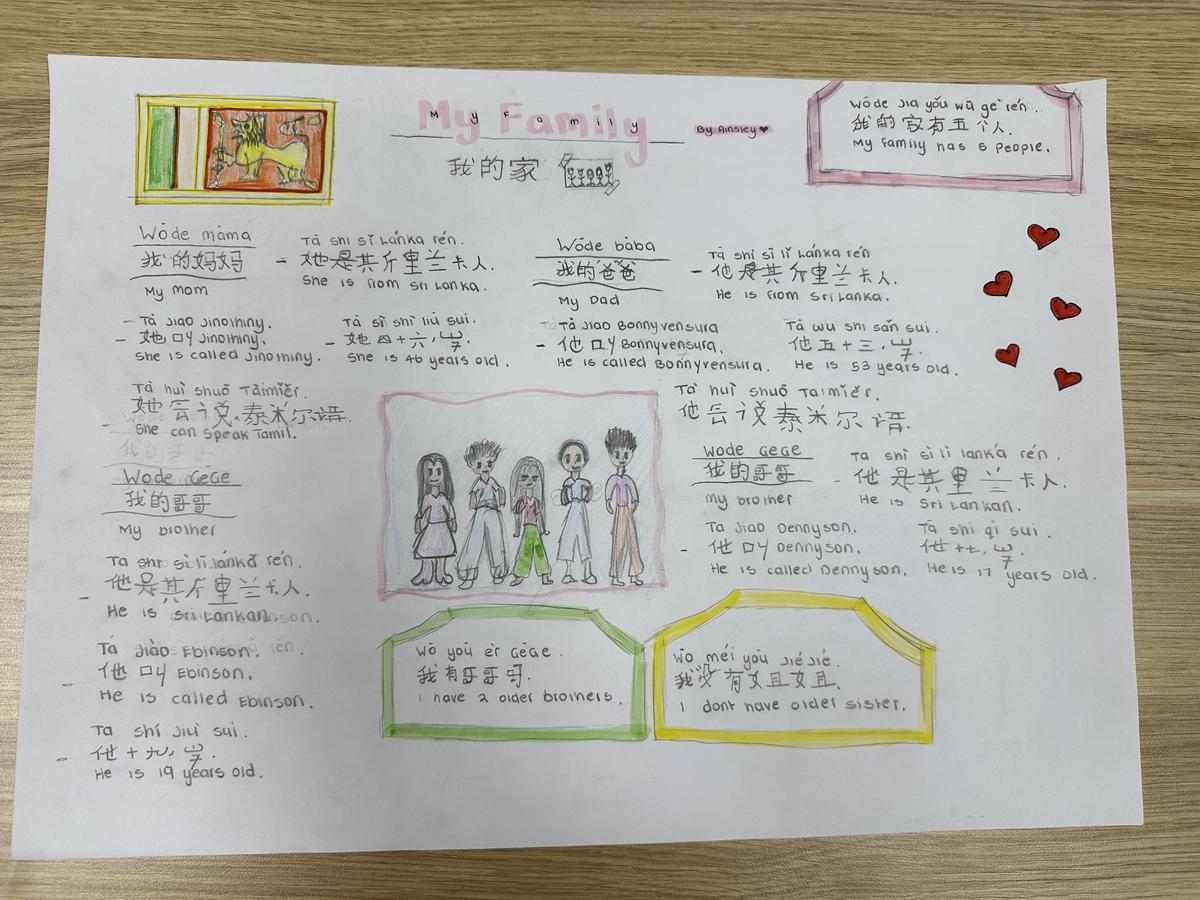 My Family
My Family
By Ainsley
我的家
Wǒde Jia yǒu wǔ gè rén.
我的家有五个人.
My Family has 5 People.
Wǒde māma
我的妈妈
My mom
Tā shì sī Lánka rén.
她是其斤里兰卡人.
She is from Sri Lanka.
Tā Jiao Jinothiny.
她叫 Jinothiny.
She is called Jinothiny.
Tā sì shí liù sui.
她四十六岁.
She is 46 years old.
Tā huì shuō Tàimǐěr.
她会说泰米尔语.
She can speak Tamil.
Wǒde bàba
我的爸爸
My Dad
Tā shì sī lǐ Lánka rén
他是其斤里兰卡人.
He is from Sri Lanka.
Tā Jiao Bonnyvensura
他叫 Bonnyvensura.
He is called Bonnyvensura.
Tā wu shí sān sui.
他五十三岁.
He is 53 years old.
Ta huì shuō Taimǐěr.
他会说泰米尔语.
Wode GēGe
我的哥哥
My brother
Ta shì sī lǐ lánkǎ rén.
他是其斤里兰卡人.
He is Sri Lankan.
Tā Jiào Ebinson.
他叫 Ebinson.
He is called Ebinson.
Ta shí Jiǔ sui.
他十九岁.
He is 19 years old.
Wode GEGE
我的哥哥
my brother
Ta shì sì lǐ lanká rén.
他是其里兰卡人.
He is Sri Lankan.
Ta Jiao Dennyson.
他叫 Dennyson.
He is called Dennyson.
Tā shí qī sui.
他十七岁.
He is 17 years old.
Wǒ yoǔ èr GēGe.
我有哥哥哥.
I have 2 older brothers.
Wǒ méi yǒu Jiě Jié.
我没有姐姐.
I dont have older sister.